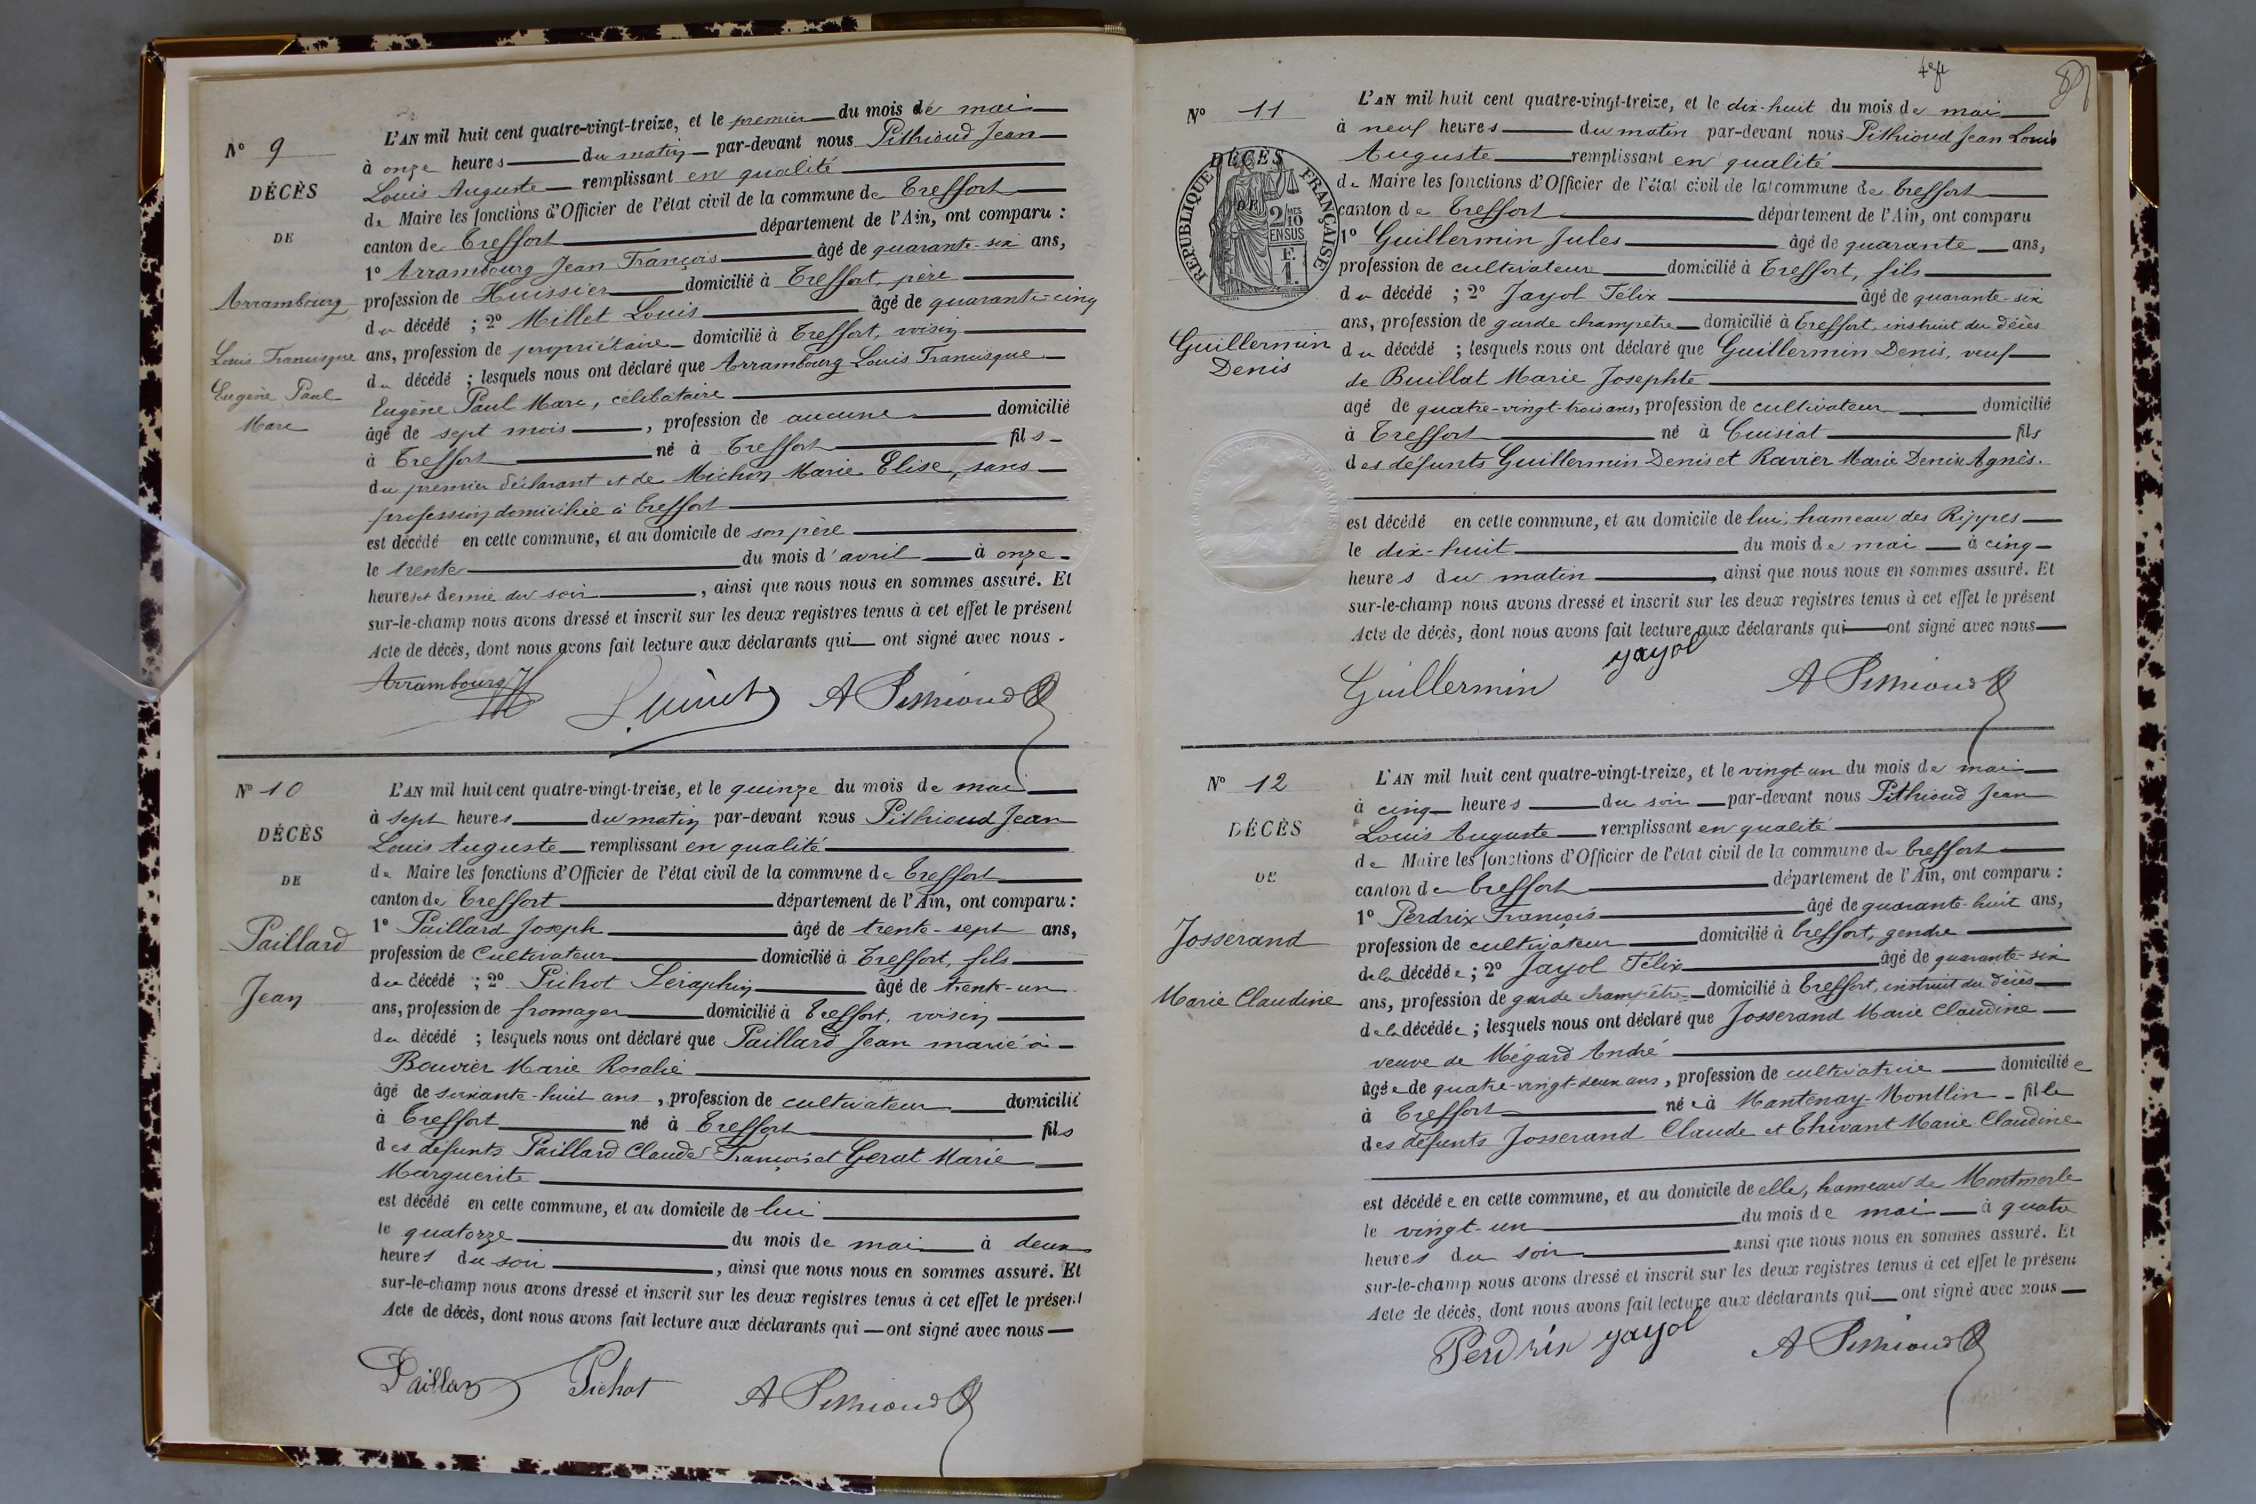 N° 9
DÉCÈS
DE
Arrambourg
Louis Francisque
Eugène Paul
Marc
L'AN mil huit cent quatre-vingt-treize, et le premier du mois de mai
à onze heures du matin par-devant nous Pithioud Jean
Louis Auguste remplissant en qualité
de Maire les fonctions d'Officier de l'état civil de la commune de Treffort
canton de Treffort département de l'Ain, ont comparu :
1° Arrambourg Jean François âgé de quarante-six ans,
profession de Huissier domicilié à Treffort, père
du décédé ; 2° Millet Louis âgé de quarante-cinq
ans, profession de propriétaire domicilié à Treffort, voisin
du décédé ; lesquels nous ont déclaré que Arrambourg Louis Francisque
Eugène Paul Marc, célibataire
âgé de sept mois , profession de aucune domicilié
à Treffort né à Treffort fils
du premier déclarant et de Michon Marie Elise, sans
profession domiciliée à Treffort
est décédé en cette commune, et au domicile de son père
le trente du mois d'avril à onze
heures et demie du soir , ainsi que nous nous en sommes assuré. Et
sur-le-champ nous avons dressé et inscrit sur les deux registres tenus à cet effet le présent
Acte de décès, dont nous avons fait lecture aux déclarants qui ont signé avec nous.
Arrambourg A Pithioud
N° 10
DÉCÈS
DE
Paillard
Jean
L'AN mil huit cent quatre-vingt-treize, et le quinze du mois de mai
à sept heures du matin par-devant nous Pithioud Jean
Louis Auguste remplissant en qualité
de Maire les fonctions d'Officier de l'état civil de la commune de Treffort
canton de Treffort département de l'Ain, ont comparu :
1° Paillard Joseph âgé de trente-sept ans,
profession de Cultivateur domicilié à Treffort, fils
du décédé ; 2° Pichot Séraphin âgé de trente-un
ans, profession de fromager domicilié à Treffort, voisin
du décédé ; lesquels nous ont déclaré que Paillard Jean marié à
Bouvier Marie Rosalie
âgé de soixante-huit ans , profession de cultivateur domicilié
à Treffort né à Treffort fils
des défunts Paillard Claude François et Gerat Marie
Marguerite
est décédé en cette commune, et au domicile de lui
le quatorze du mois de mai à deux
heures du soir , ainsi que nous nous en sommes assuré. Et
sur-le-champ nous avons dressé et inscrit sur les deux registres tenus à cet effet le présent
Acte de décès, dont nous avons fait lecture aux déclarants qui ont signé avec nous
Paillard Pichot A Pithioud
N° 11
DÉCÈS
DE
RÉPUBLIQUE FRANÇAISE
2/10 MES
EN SUS
F.
1.
Guillermin
Denis
L'AN mil huit cent quatre-vingt-treize, et le dix-huit du mois de mai
à neuf heures du matin par-devant nous Pithioud Jean Louis
Auguste remplissant en qualité
de Maire les fonctions d'Officier de l'état civil de la commune de Treffort
canton de Treffort département de l'Ain, ont comparu
1° Guillermin Jules âgé de quarante ans,
profession de cultivateur domicilié à Treffort, fils
du décédé ; 2° Jayol Félix âgé de quarante-six
ans, profession de garde champêtre domicilié à Treffort, instruit du décès
du décédé ; lesquels nous ont déclaré que Guillermin Denis, veuf
de Buillat Marie Josephte
âgé de quatre-vingt-trois ans, profession de cultivateur domicilié
à Treffort né à Cuisiat fils
des défunts Guillermin Denis et Ravier Marie Denise Agnès.
est décédé en cette commune, et au domicile de lui, hameau des Rippes
le dix-huit du mois de mai à cinq
heures du matin , ainsi que nous nous en sommes assuré. Et
sur-le-champ nous avons dressé et inscrit sur les deux registres tenus à cet effet le présent
Acte de décès, dont nous avons fait lecture aux déclarants qui ont signé avec nous
Guillermin yayol A Pithioud
N° 12
DÉCÈS
DE
Josserand
Marie Claudine
L'AN mil huit cent quatre-vingt-treize, et le vingt-un du mois de mai
à cinq heures du soir par-devant nous Pithioud Jean
Louis Auguste remplissant en qualité
de Maire les fonctions d'Officier de l'état civil de la commune de Treffort
canton de Treffort département de l'Ain, ont comparu :
1° Perdrix François âgé de quarante-huit ans,
profession de cultivateur domicilié à Treffort, gendre
de la décédée ; 2° Jayol Félix âgé de quarante-six
ans, profession de garde champêtre domicilié à Treffort, instruit du décès
de la décédée ; lesquels nous ont déclaré que Josserand Marie Claudine
veuve de Mégard André
âgée de quatre-vingt-deux ans, profession de cultivatrice domiciliée
à Treffort née à Mantenay-Montlin fille
des défunts Josserand Claude et Thivant Marie Claudine
est décédée en cette commune, et au domicile de elle, hameau de Montmerle
le vingt-un du mois de mai à quatre
heures du soir ainsi que nous nous en sommes assuré. Et
sur-le-champ nous avons dressé et inscrit sur les deux registres tenus à cet effet le présent
Acte de décès, dont nous avons fait lecture aux déclarants qui ont signé avec nous
Perdrix yayol A Pithioud